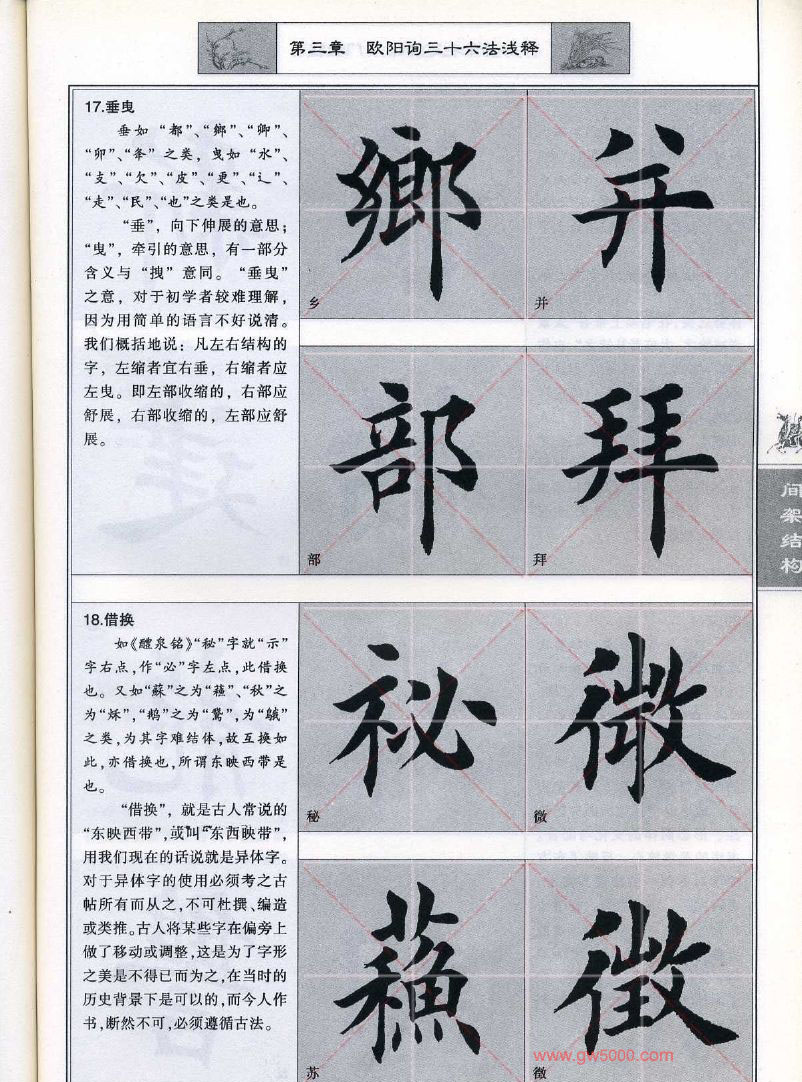 第三章 欧阳询三十六法浅释
17.垂曳
垂如“都”、“鄉”、“卿”、
“卯”、“夅”之类，曳如“水”、
“支”、“欠”、“皮”、“更”、“辶”、
“走”、“民”、“也”之类是也。
“垂”，向下伸展的意思；
“曳”，牵引的意思，有一部分
含义与“拽”意同。“垂曳”
之意，对于初学者较难理解，
因为用简单的语言不好说清。
我们概括地说：凡左右结构的
字，左缩者宜右垂，右缩者应
左曳。即左部收缩的，右部应
舒展，右部收缩的，左部应舒
展。
鄉
乡
并
并
部
部
拜
拜
18.借换
如《醴泉铭》“秘”字就“示”
字右点，作“必”字左点，此借换
也。又如“蘇”之为“蘓”、“秋”之
为“秌”，“鹅”之为“鵞”，为“䳘”
之类，为其字难结体，故互换如
此，亦借换也，所谓东映西带是
也。
“借换”，就是古人常说的
“东映西带”，或叫“东西映带”，
用我们现在的话说就是异体字。
对于异体字的使用必须考之古
帖所有而从之，不可杜撰、编造
或类推。古人将某些字在偏旁上
做了移动或调整，这是为了字形
之美是不得已而为之，在当时的
历史背景下是可以的，而今人作
书，断然不可，必须遵循古法。
祕
秘
微
微
蘓
苏
徵
徵
间架结构
www.gw5000.com